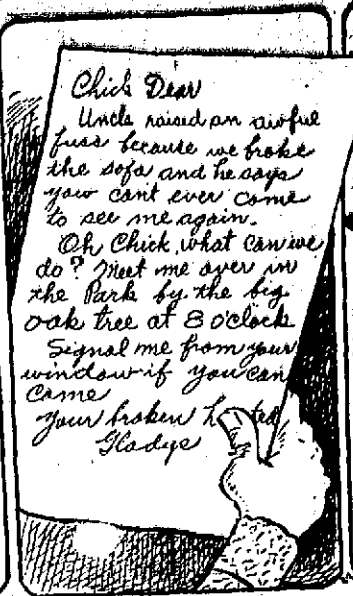 Chick Dear
Uncle raised an awful
fuss because we broke
the sofa and he says
you cant ever come
to see me again.
Oh Chick, what can we
do? Meet me over in
the Park by the big
oak tree at 8 o'clock
Signal me from your
window if you can
come
your broken h ted
Gladys